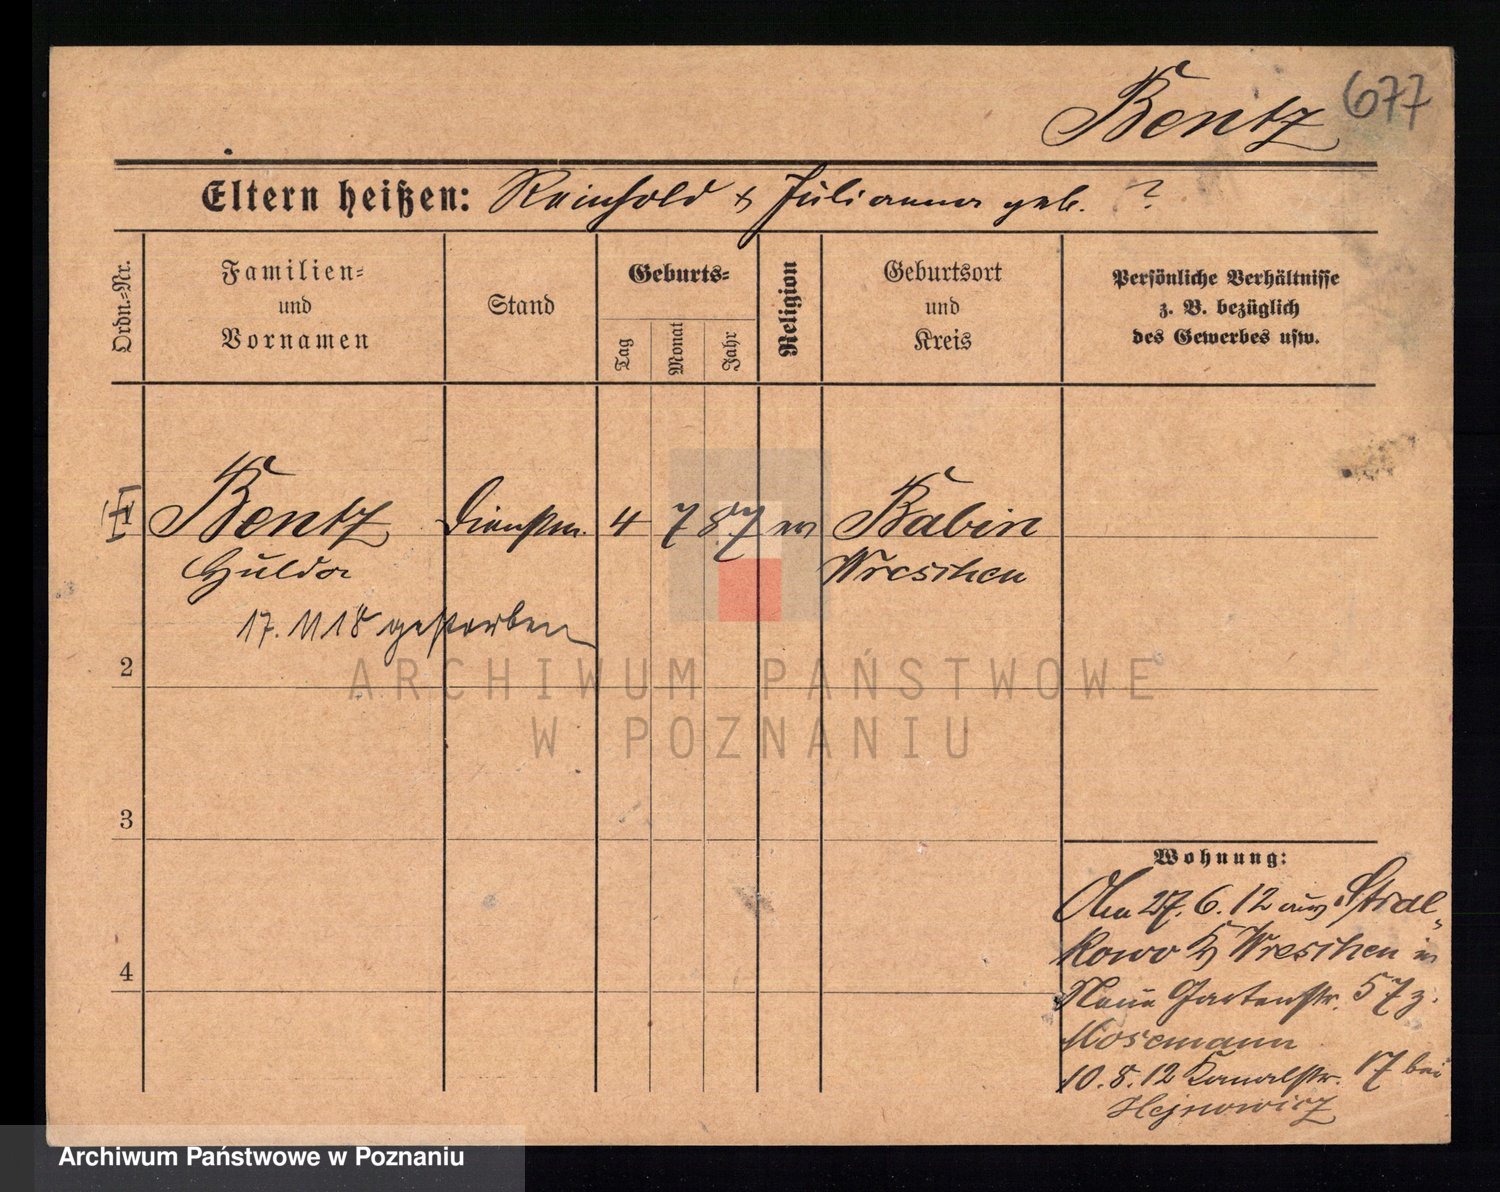 Bentz 677
Eltern heißen: Reinhold & Julianna geb. ?
Ordn.-Nr.
Familien-
und
Vornamen
Stand
Geburts-
Tag
Monat
Jahr
Religion
Geburtsort
und
Kreis
Persönliche Verhältnisse
z. B. bezüglich
des Gewerbes usw.
1 Bentz Dienstm. 4 7 87 ev Babin
Hulda Wreschen
17. 11 18 gestorben
2
ARCHIWUM PAŃSTWOWE
W POZNANIU
3
Wohnung:
Am 27. 6. 12 aus Stral-
kowo Kr Wreschen in
4
Neue Gartenstr. 57 z.
Mosemann
10. 8. 12 Kanalstr. 17 bei
Hejnowicz
Archiwum Państwowe w Poznaniu